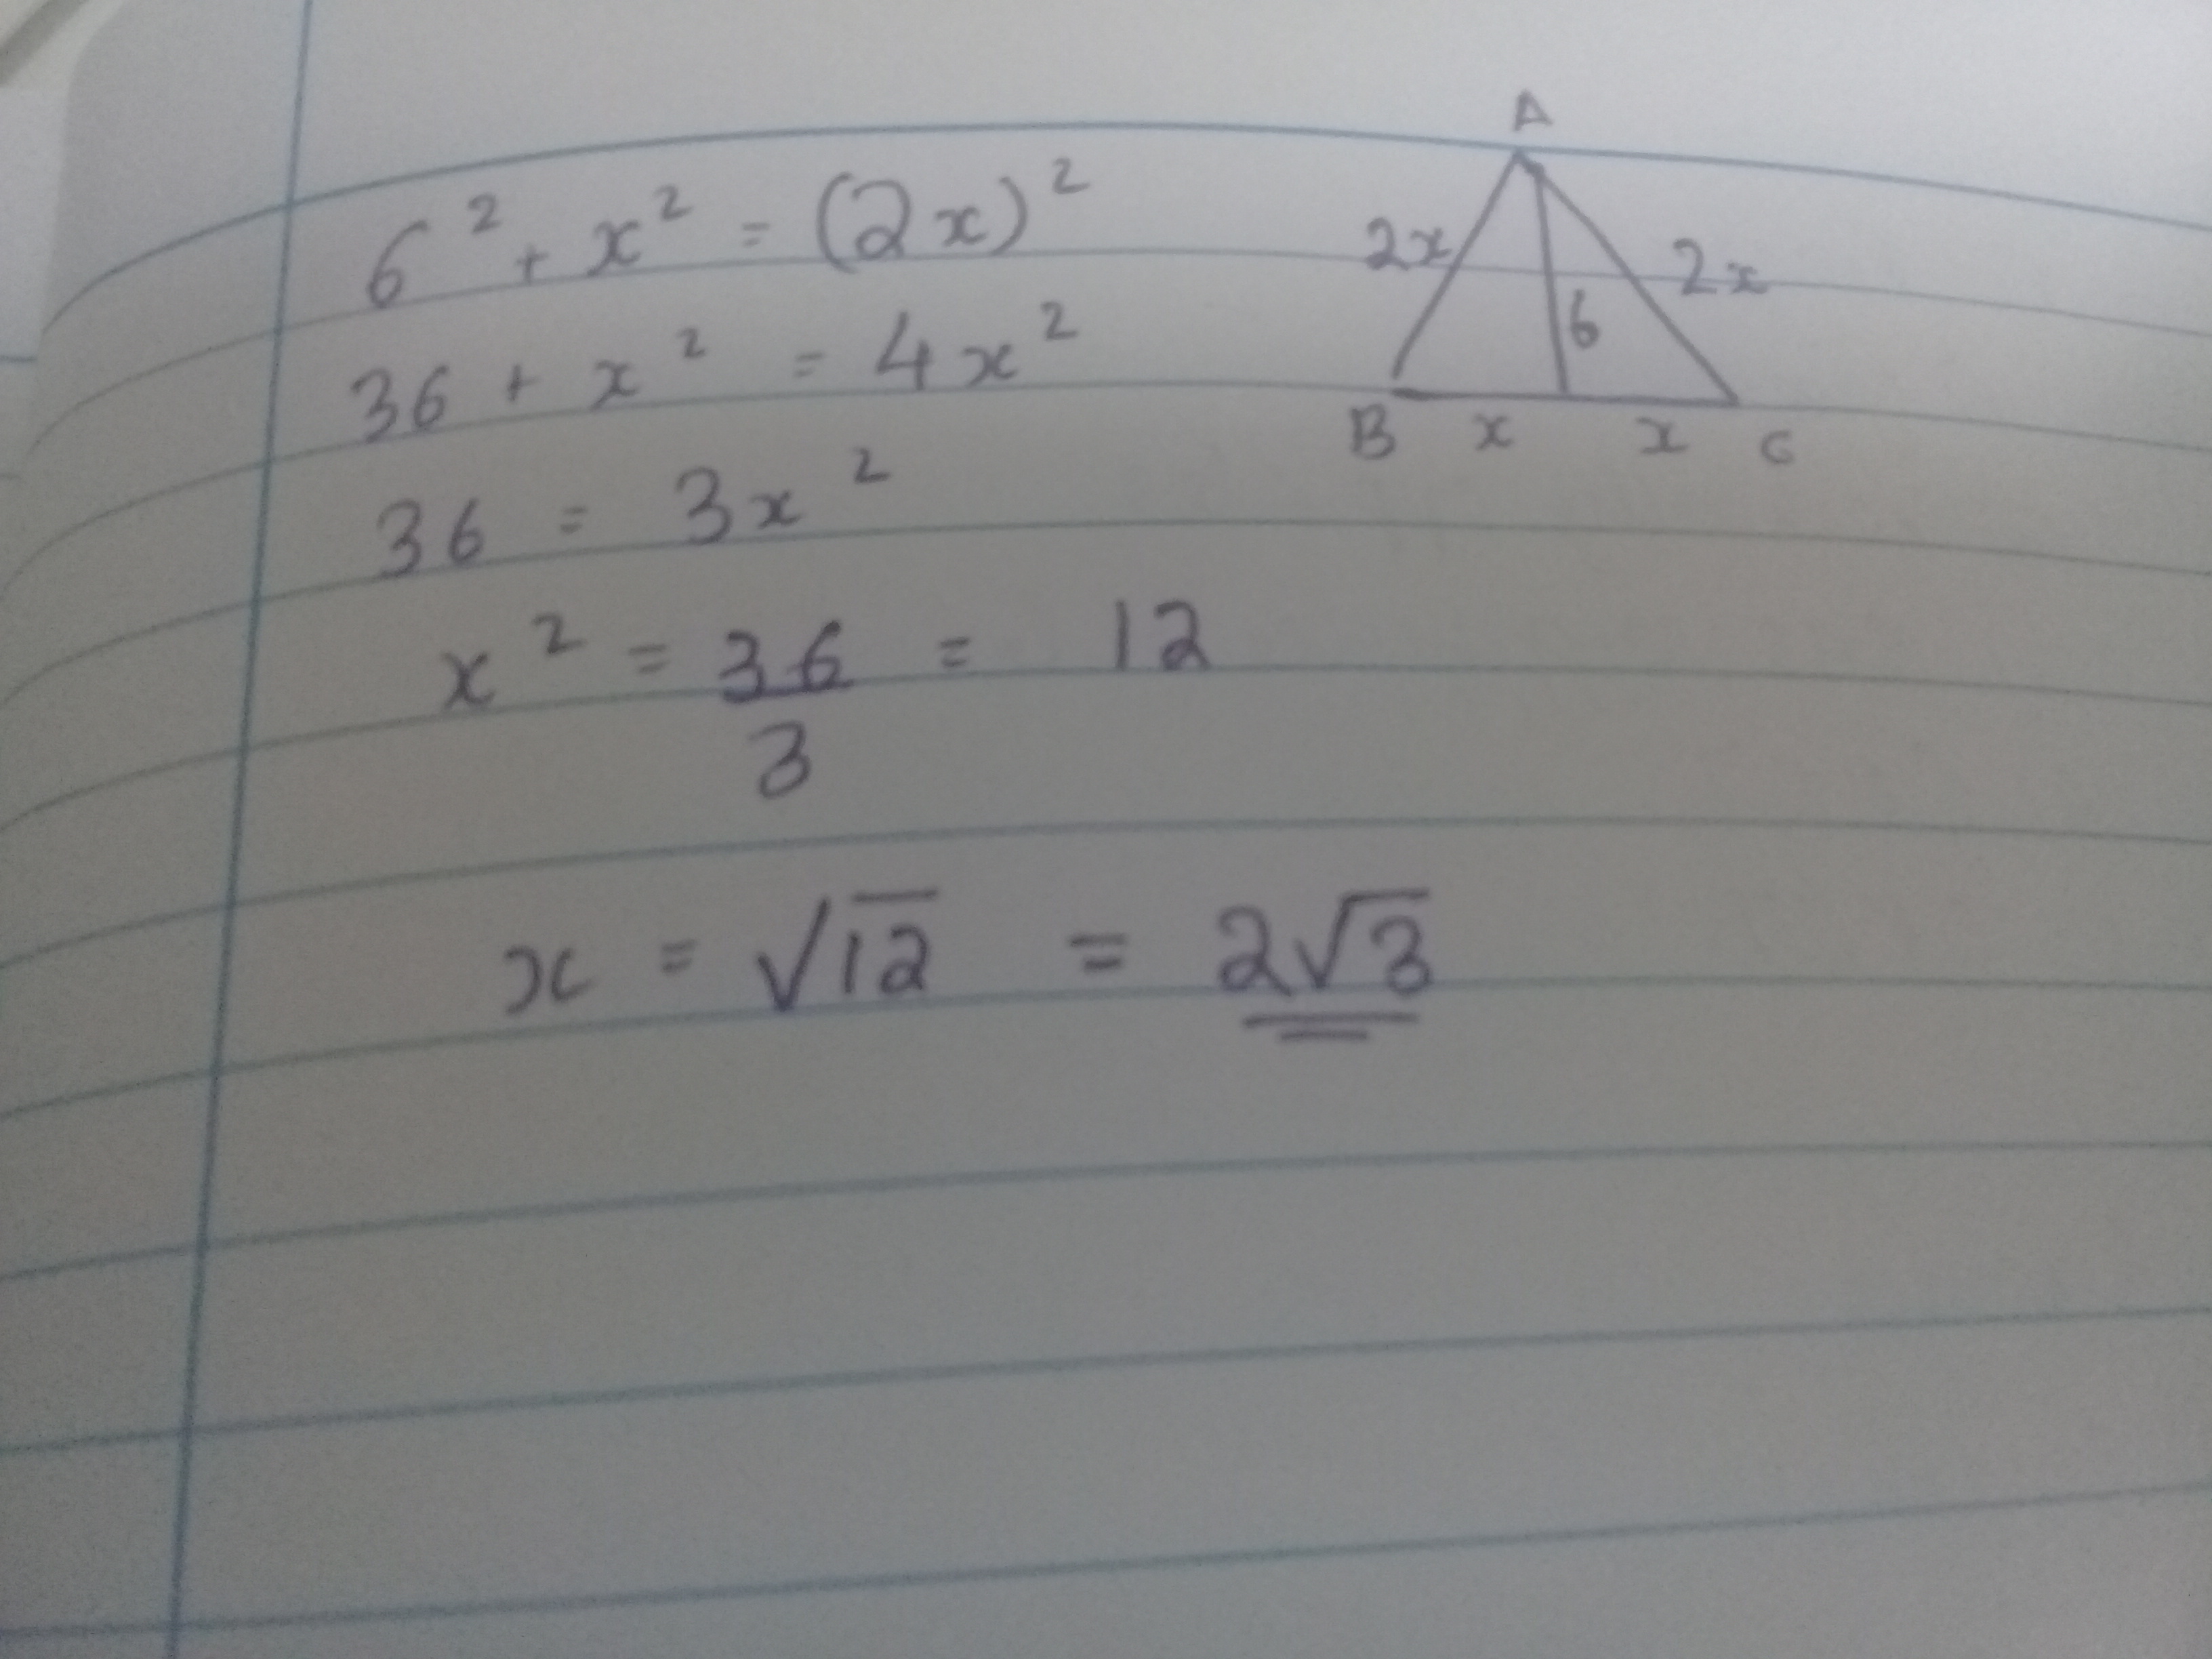 6² + x² = (2x)²
36 + x² = 4x²
36 = 3x²
x² = 36/3 = 12
x = √12 = 2√3
A
2x 2x
6
B x x C